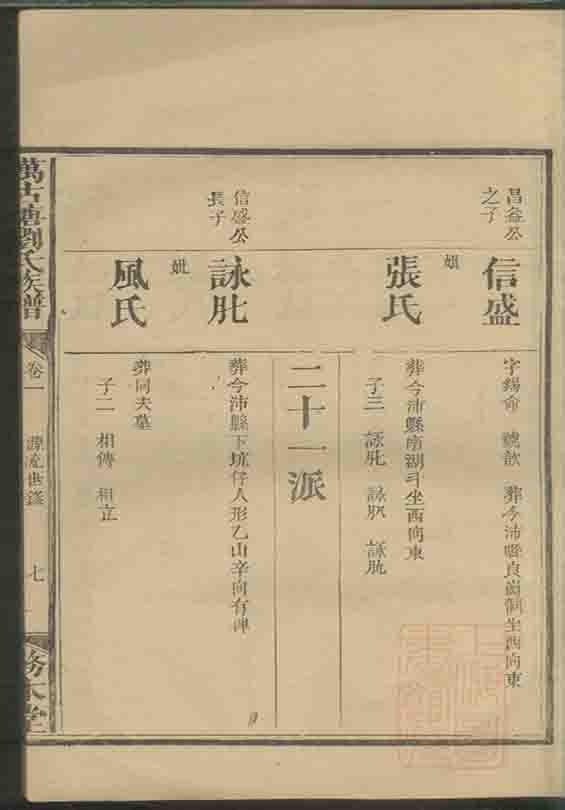 昌益公
之子
信盛
字錫命 號歆 葬今沛縣良崗制坐西向東
妣
張氏
葬今沛縣南湖斗坐西向東
子三 詠肶 詠肞 詠肮
二十一派
信盛公
長子
詠肶
葬今沛縣下坑仔人形乙山辛向有碑
妣
風氏
葬同夫墓
子二 相傳 相立
萬古塘劉氏族譜
卷一
源流世鑑
七
務本堂